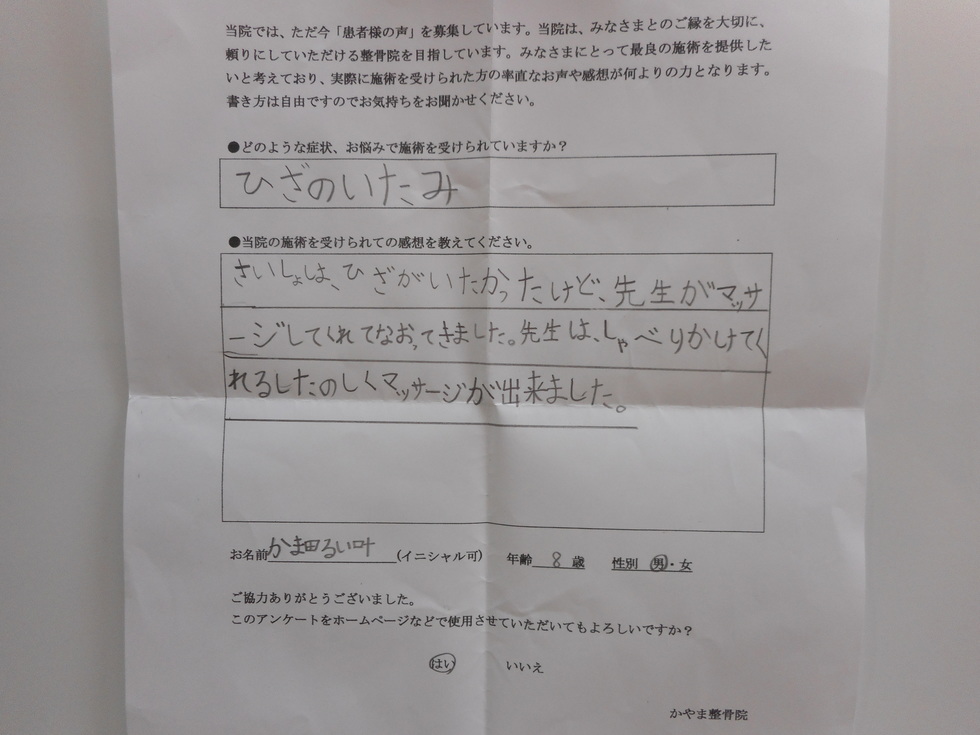 当院では、ただ今「患者様の声」を募集しています。当院は、みなさまとのご縁を大切に、
頼りにしていただける整骨院を目指しています。みなさまにとって最良の施術を提供した
いと考えており、実際に施術を受けられた方の率直なお声や感想が何よりの力となります。
書き方は自由ですのでお気持ちをお聞かせください。
●どのような症状、お悩みで施術を受けられていますか？
ひざのいたみ
●当院の施術を受けられての感想を教えてください。
さいしょは、ひざがいたかったけど、先生がマッサ
ージしてくれてなおってきました。先生は、しゃべりかけてく
れるしたのしくマッサージが出来ました。
お名前かま田るい叶(イニシャル可) 年齢 8 歳 性別 男・女
ご協力ありがとうございました。
このアンケートをホームページなどで使用させていただいてもよろしいですか？
はい いいえ
かやま整骨院